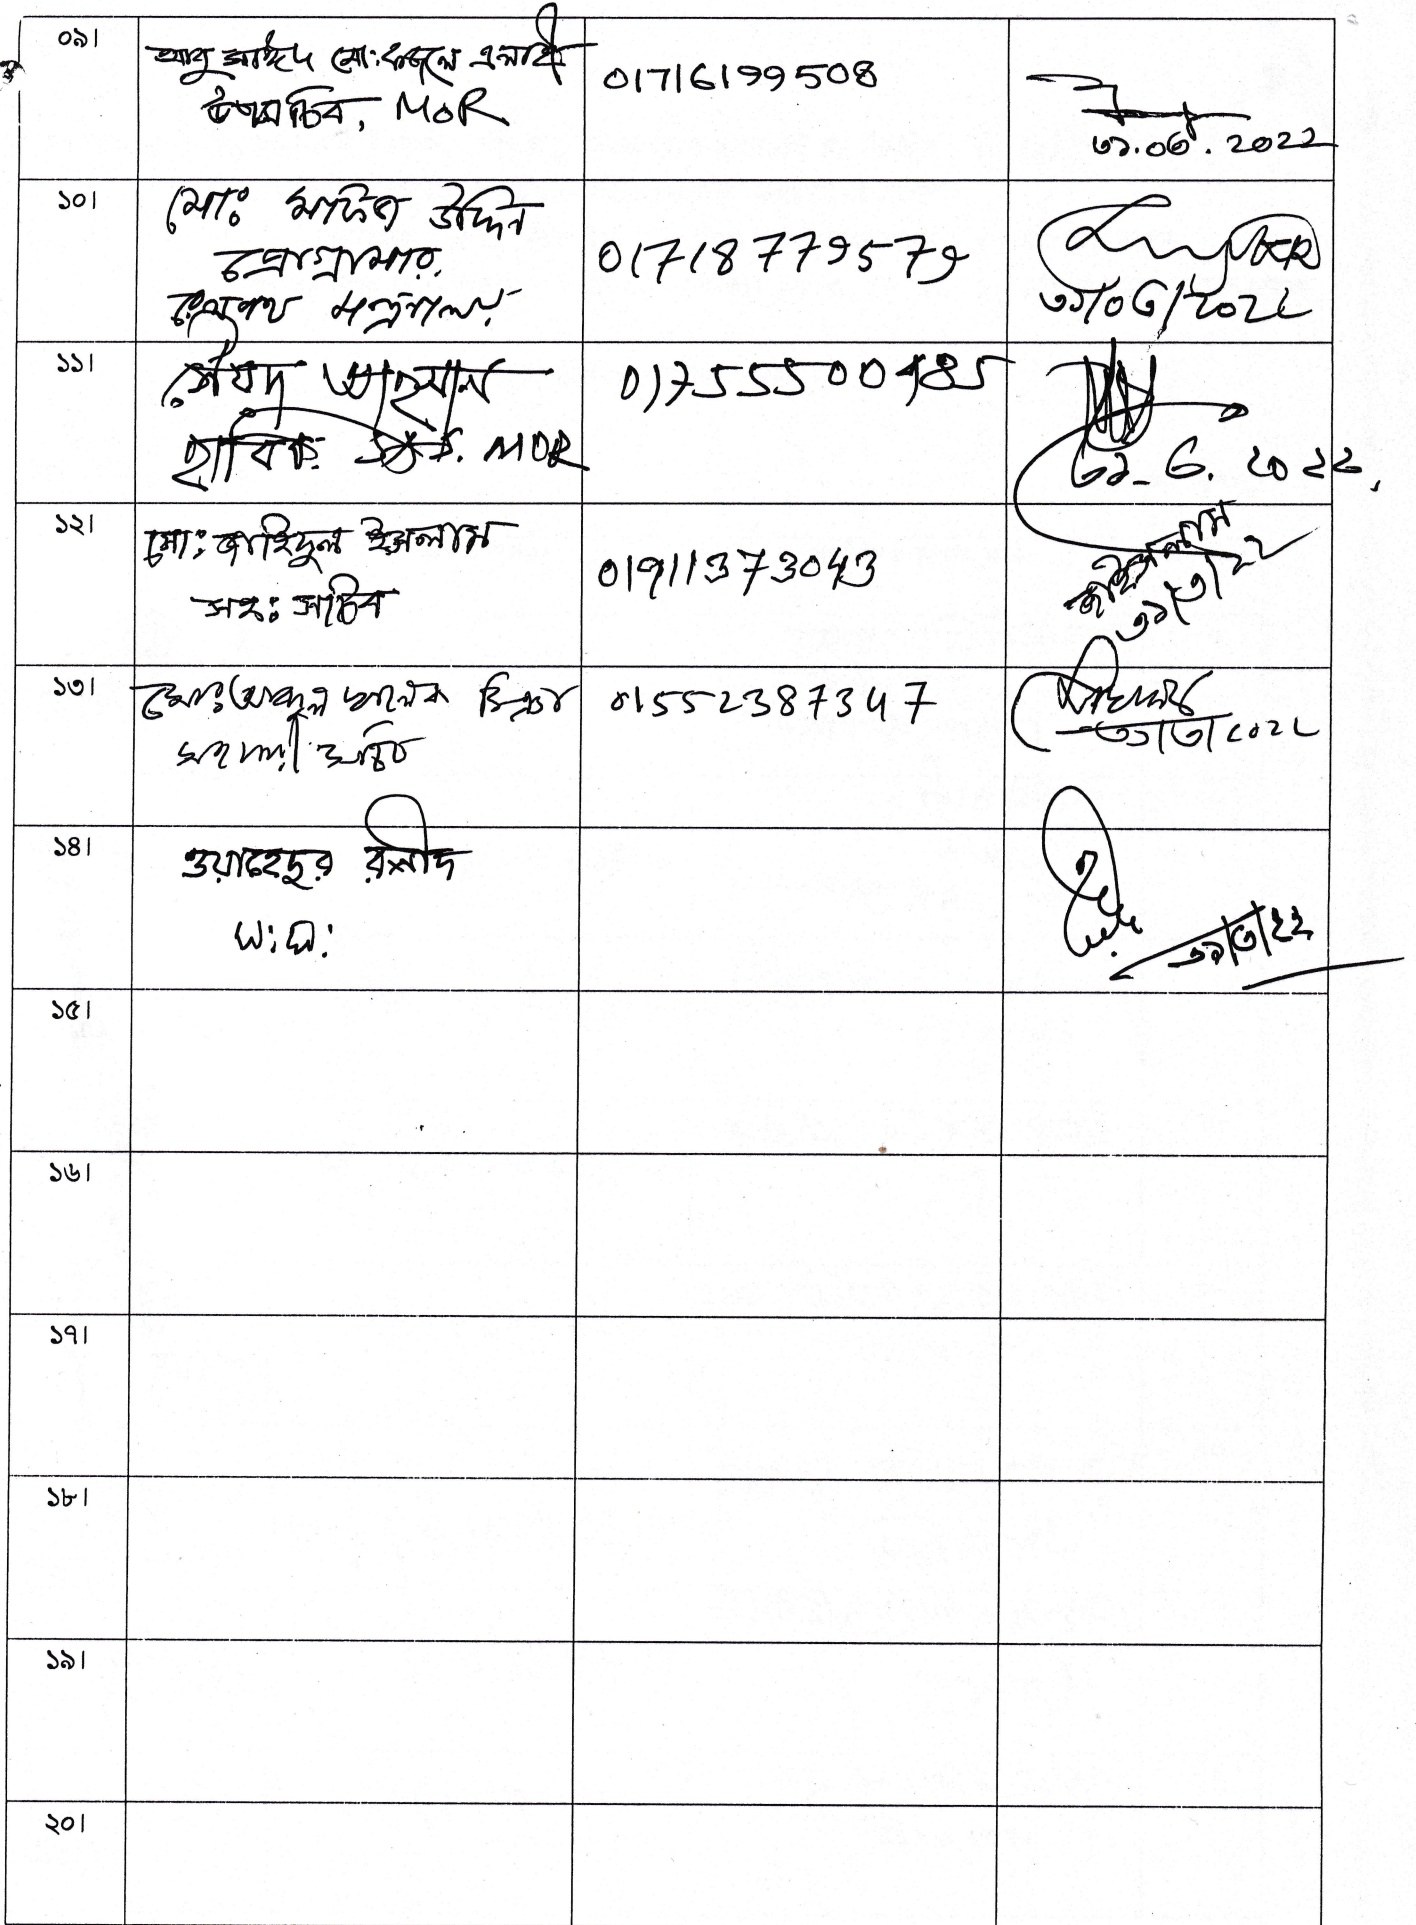 ০৯।
আবু সাঈদ মো: ফজলে এলাহী
উপসচিব, MOR
01716199508
৩১.০৩.2022
১০।
মোঃ উদ্দিন
প্রোগ্রামার,
রেলপথ মন্ত্রণালয়
01718779579
৩১/০৩/২০২২
১১।
সৈয়দ আহসান
হাবিব MOR
01755500485
৩১-৩. ২০২২,
১২।
মো: জাহিদুল ইসলাম
সহঃ সচিব
01911373043
৩১/৩/২২
১৩।
মোঃ আব্দুল মালেক
সহকারী সচিব
01552387347
৩১/৩/২০২২
১৪।
ওয়াহেদুর রশীদ
৩১/৩/২২
১৫।
১৬।
১৭।
১৮।
১৯।
২০।